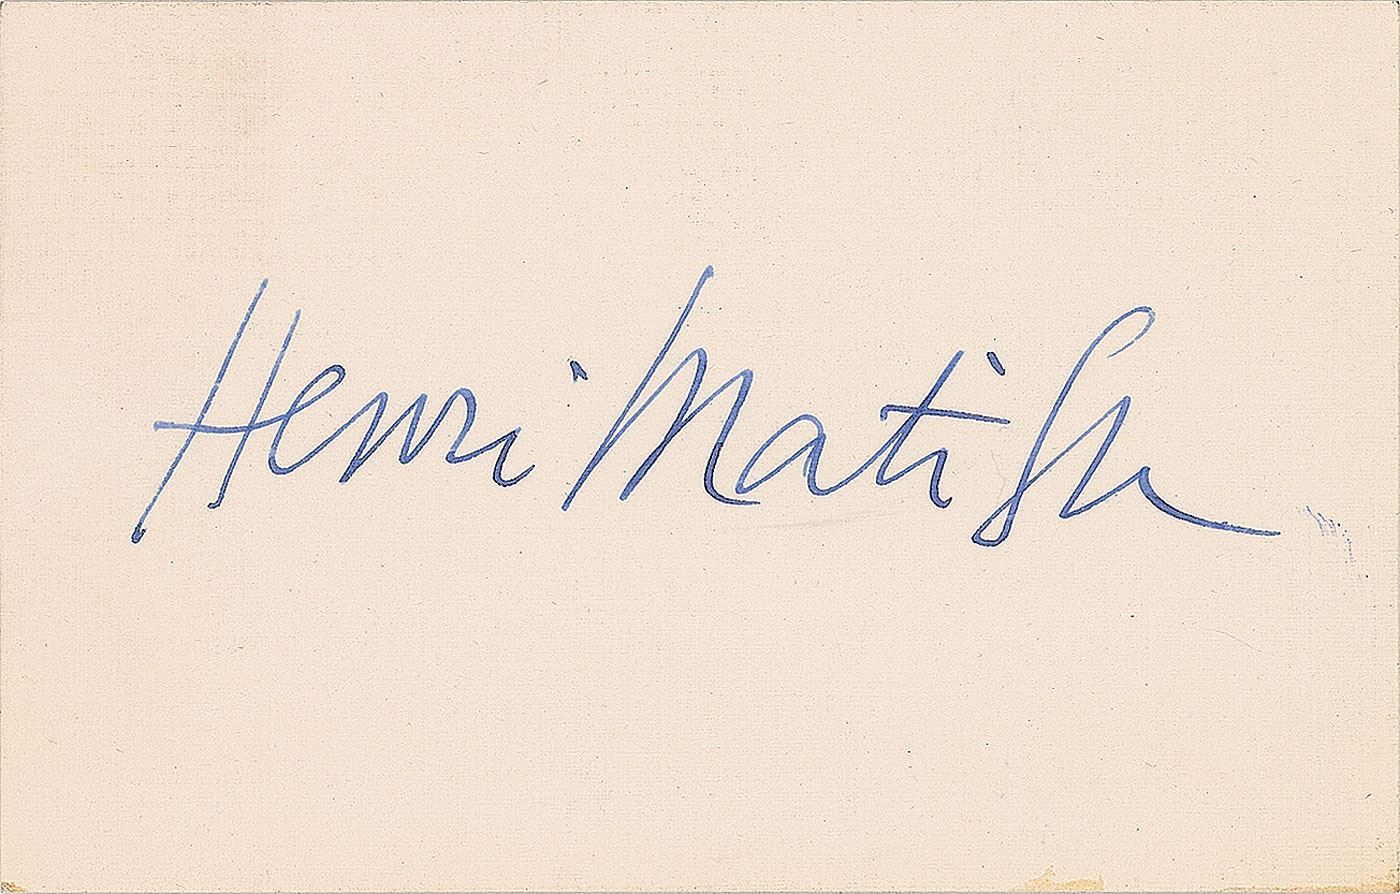 Henri Matisse